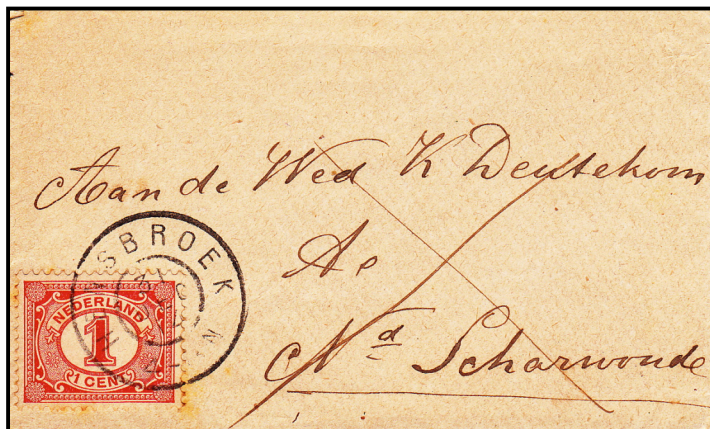 Aan de Wed K Deutekom
Ae
Nd Scharwoude
SBROEK
NEDERLAND
1
1 CENT